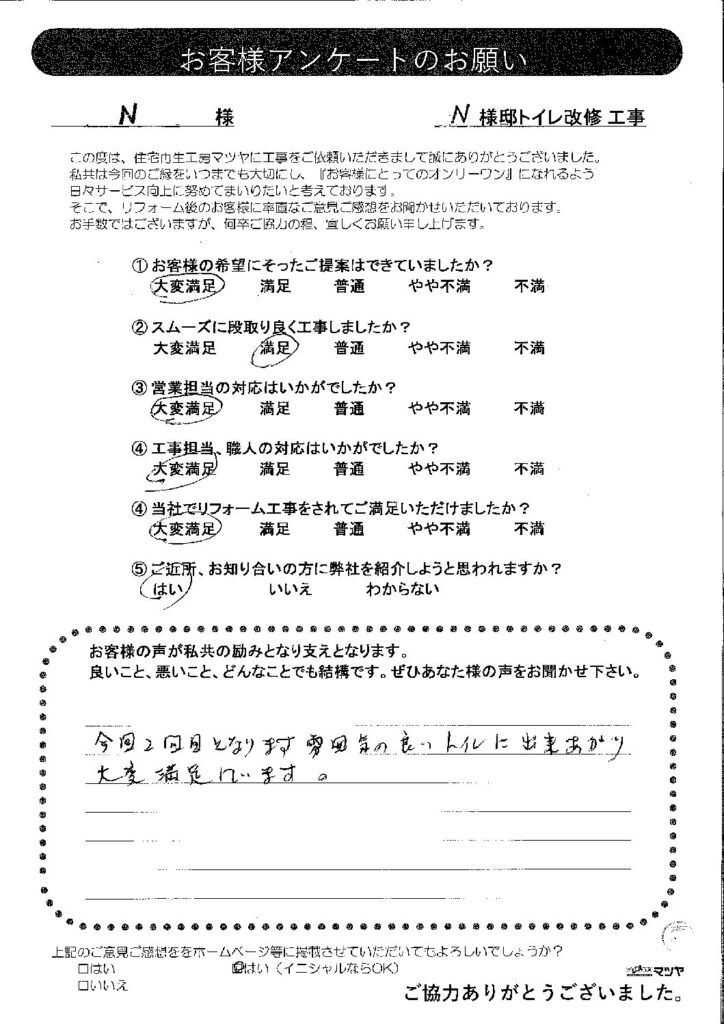 お客様アンケートのお願い
N 様
N 様邸トイレ改修 工事
この度は、住宅再生工房マツヤに工事をご依頼いただきまして誠にありがとうございました。
私共は今回のご縁をいつまでも大切にし、『お客様にとってのオンリーワン』になれるよう
日々サービス向上に努めてまいりたいと考えております。
そこで、リフォーム後のお客様に率直なご意見ご感想をお聞かせいただいております。
お手数ではございますが、何卒ご協力の程、宜しくお願い申し上げます。
①お客様の希望にそったご提案はできていましたか?
大変満足 満足 普通 やや不満 不満
②スムーズに段取り良く工事しましたか?
大変満足 満足 普通 やや不満 不満
③営業担当の対応はいかがでしたか?
大変満足 満足 普通 やや不満 不満
④工事担当、職人の対応はいかがでしたか?
大変満足 満足 普通 やや不満 不満
④当社でリフォーム工事をされてご満足いただけましたか?
大変満足 満足 普通 やや不満 不満
⑤ご近所、お知り合いの方に弊社を紹介しようと思われますか?
はい いいえ わからない
お客様の声が私共の励みとなり支えとなります。
良いこと、悪いこと、どんなことでも結構です。ぜひあなた様の声をお聞かせ下さい。
今回2回目となります 雰囲気の良いトイレに出来あがり
大変満足しています。
上記のご意見ご感想ををホームページ等に掲載させていただいてもよろしいでしょうか?
□はい ☑はい(イニシャルならOK)
□いいえ
マツヤ
ご協力ありがとうございました。